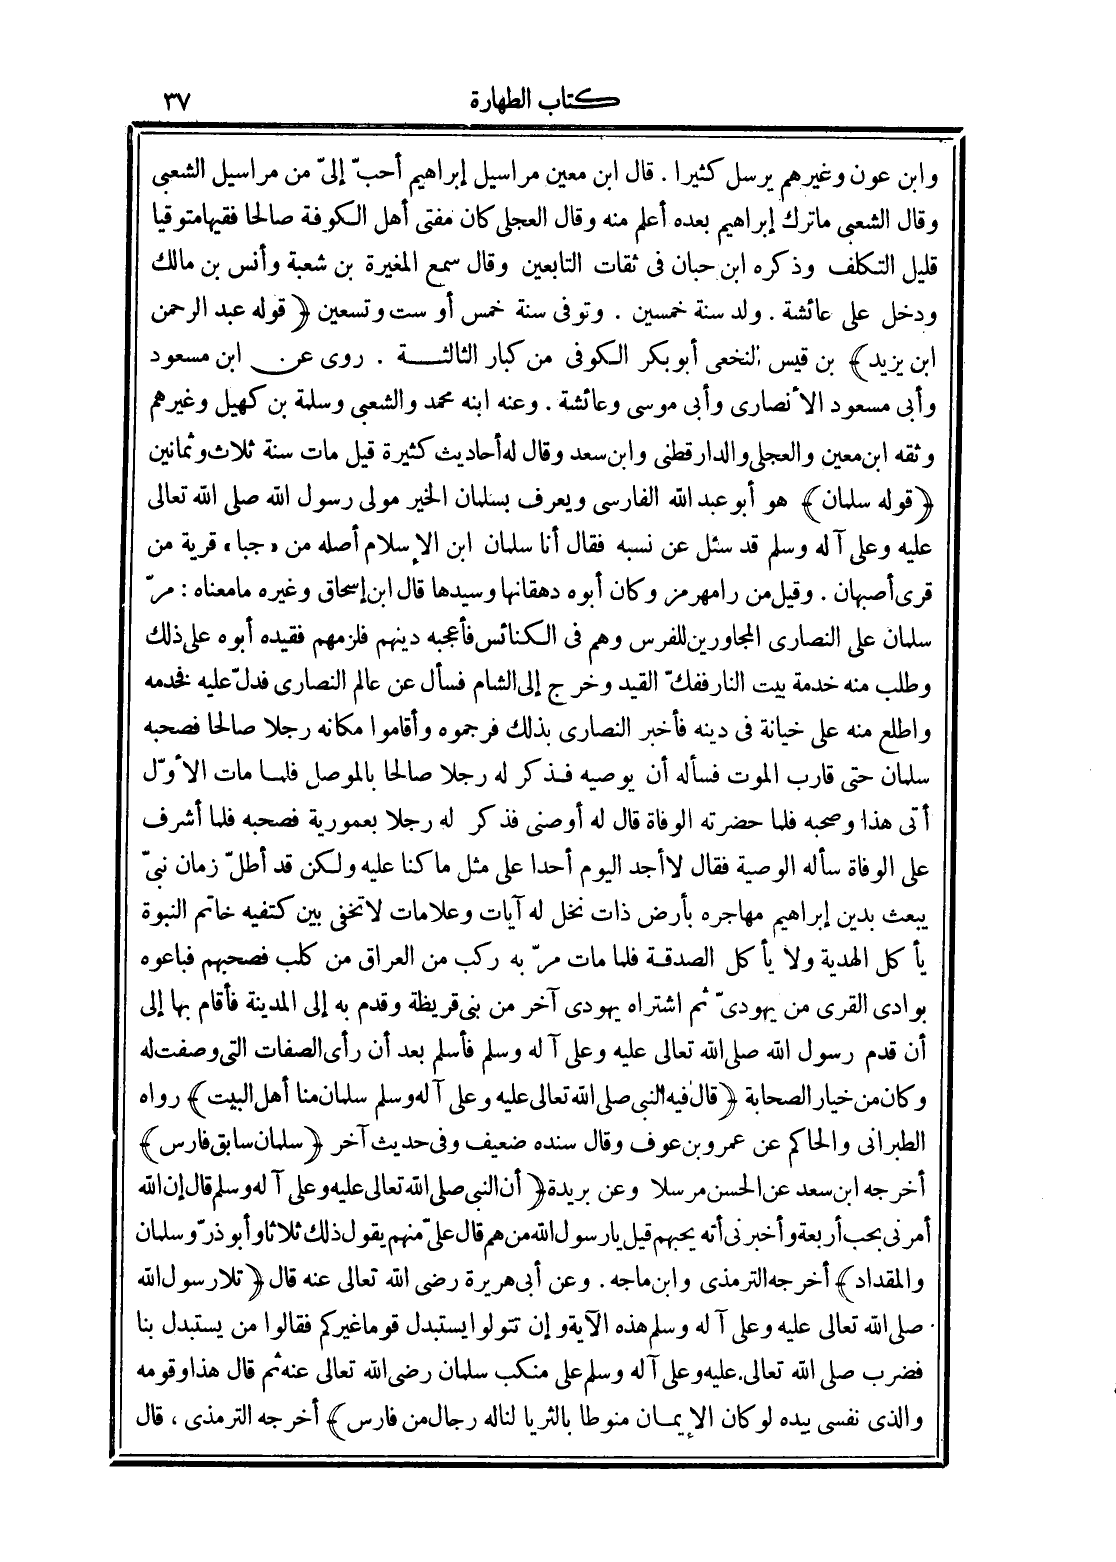 كتاب الطهارة ٣٧
وابن عون وغيرهم يرسل كثيرا . قال ابن معين مراسيل إبراهيم أحبّ إلىّ من مراسيل الشعبى
وقال الشعبى ماترك إبراهيم بعده أعلم منه وقال العجلى كان مفتى أهل الكوفة صالحا فقيها متوقيا
قليل التكلف وذكره ابن حبان فى ثقات التابعين وقال سمع المغيرة بن شعبة وأنس بن مالك
ودخل على عائشة . ولد سنة خمسين . وتوفى سنة خمس أو ست وتسعين ﴿ قوله عبد الرحمن
ابن يزيد﴾ بن قيس النخعى أبو بكر الكوفى من كبار الثالثة . روى عن ابن مسعود
وأبى مسعود الأنصارى وأبى موسى وعائشة . وعنه ابنه محمد والشعبى وسلمة بن كهيل وغيرهم
وثقه ابن معين والعجلى والدارقطنى وابن سعد وقال له أحاديث كثيرة قيل مات سنة ثلاث وثمانين
﴿قوله سلمان﴾ هو أبو عبد الله الفارسى ويعرف بسلمان الخير مولى رسول الله صلى الله تعالى
عليه وعلى آله وسلم قد سئل عن نسبه فقال أنا سلمان ابن الإسلام أصله من «جبا» قرية من
قرى أصبهان . وقيل من رامهرمز وكان أبوه دهقانها وسيدها قال ابن إسحاق وغيره مامعناه : مرّ
سلمان على النصارى المجاورين للفرس وهم فى الكنائس فأعجبه دينهم فلزمهم فقيده أبوه على ذلك
وطلب منه خدمة بيت النار ففكّ القيد وخرج إلى الشام فسأل عن عالم النصارى فدلّ عليه فخدمه
واطلع منه على خيانة فى دينه فأخبر النصارى بذلك فرجموه وأقاموا مكانه رجلا صالحا فصحبه
سلمان حتى قارب الموت فسأله أن يوصيه فذكر له رجلا صالحا بالموصل فلما مات الأوّل
أتى هذا وصحبه فلما حضرته الوفاة قال له أوصنى فذكر له رجلا بعمورية فصحبه فلما أشرف
على الوفاة سأله الوصية فقال لاأجد اليوم أحدا على مثل ماكنا عليه ولكن قد أطلّ زمان نبىّ
يبعث بدين إبراهيم مهاجره بأرض ذات نخل له آيات وعلامات لاتخفى بين كتفيه خاتم النبوة
يأكل الهدية ولا يأكل الصدقة فلما مات مرّ به ركب من العراق من كلب فصحبهم فباعوه
بوادى القرى من يهودىّ ثم اشتراه يهودى آخر من بنى قريظة وقدم به إلى المدينة فأقام بها إلى
أن قدم رسول الله صلى الله تعالى عليه وعلى آله وسلم فأسلم بعد أن رأى الصفات التى وصفت له
وكان من خيار الصحابة ﴿قال فيه النبى صلى الله تعالى عليه وعلى آله وسلم سلمان منا أهل البيت﴾ رواه
الطبرانى والحاكم عن عمرو بن عوف وقال سنده ضعيف وفى حديث آخر ﴿سلمان سابق فارس﴾
أخرجه ابن سعد عن الحسن مرسلا وعن بريدة ﴿أن النبى صلى الله تعالى عليه وعلى آله وسلم قال إن الله
أمرنى بحب أربعة وأخبرنى أنه يحبهم قيل يارسول الله من هم قال علىّ منهم يقول ذلك ثلاثا وأبوذرّ وسلمان
والمقداد﴾ أخرجه الترمذى وابن ماجه . وعن أبى هريرة رضى الله تعالى عنه قال ﴿تلا رسول الله
صلى الله تعالى عليه وعلى آله وسلم هذه الآية وإن تتولوا يستبدل قوما غيركم فقالوا من يستبدل بنا
فضرب صلى الله تعالى عليه وعلى آله وسلم على منكب سلمان رضى الله تعالى عنه ثم قال هذا وقومه
والذى نفسى بيده لوكان الإيمان منوطا بالثريا لناله رجال من فارس﴾ أخرجه الترمذى ، قال